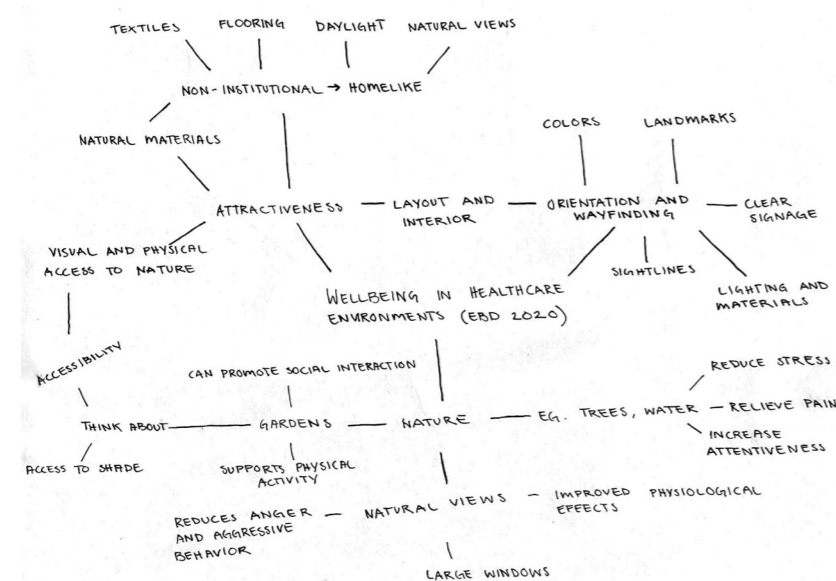 TEXTILES
FLOORING
DAYLIGHT
NATURAL VIEWS
NON-INSTITUTIONAL → HOMELIKE
NATURAL MATERIALS
COLORS
LANDMARKS
ATTRACTIVENESS
LAYOUT AND
INTERIOR
ORIENTATION AND
WAYFINDING
CLEAR
SIGNAGE
VISUAL AND PHYSICAL
ACCESS TO NATURE
SIGHTLINES
LIGHTING AND
MATERIALS
WELLBEING IN HEALTHCARE
ENVIRONMENTS (EBD 2020)
ACCESSIBILITY
CAN PROMOTE SOCIAL INTERACTION
REDUCE STRESS
THINK ABOUT
GARDENS
NATURE
EG. TREES, WATER
RELIEVE PAIN
INCREASE
ATTENTIVENESS
ACCESS TO SHADE
SUPPORTS PHYSICAL
ACTIVITY
REDUCES ANGER
AND AGGRESSIVE
BEHAVIOR
NATURAL VIEWS
IMPROVED PHYSIOLOGICAL
EFFECTS
LARGE WINDOWS